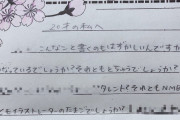 20才の私へ
こんなこと書くのもはずかしいんですが
なっているでしょうか？それともとちゅうでしょうか？
タレント？それともNMB
どもイラストレーターのたまごでしょうか？